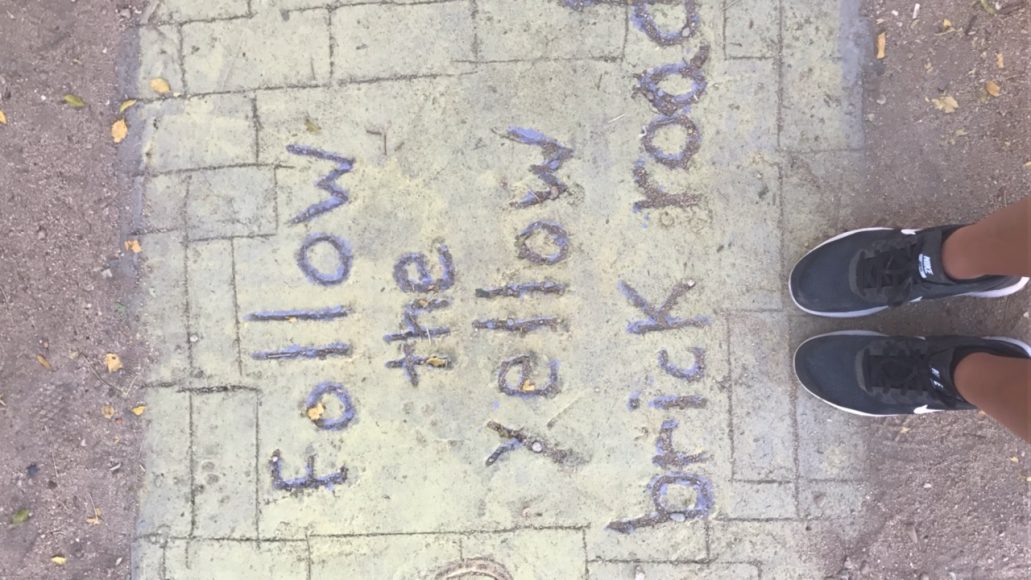 Follow
the
yellow
brick road
NIKE